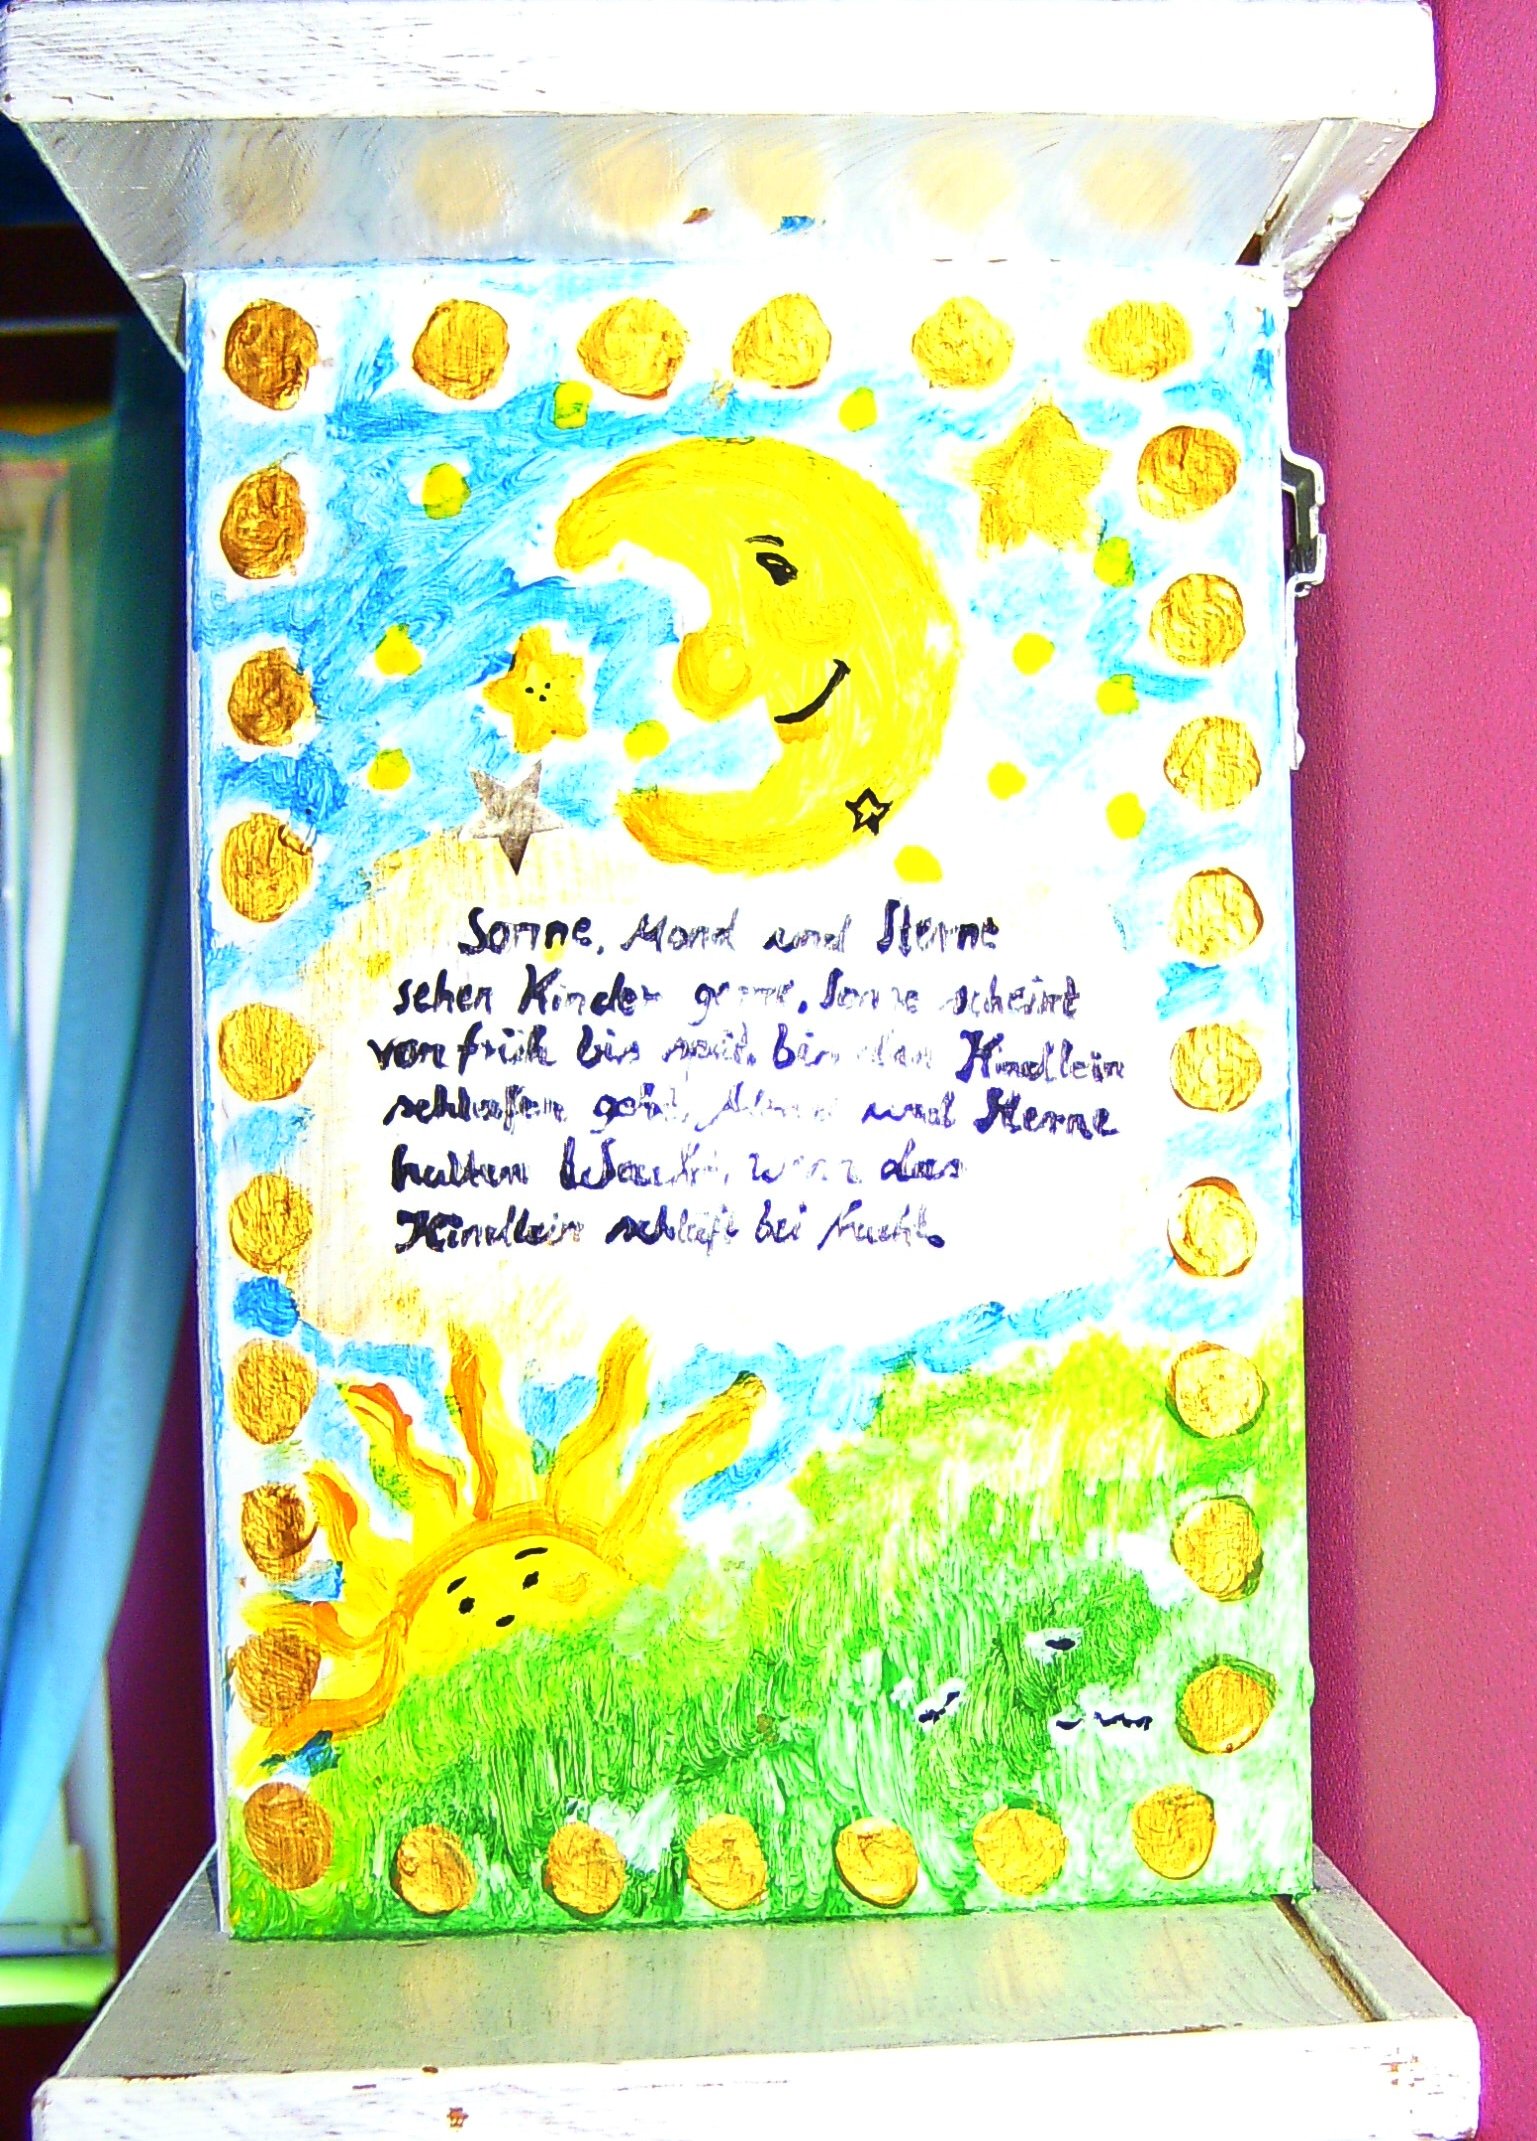 Sonne, Mond und Sterne
sehen Kinder gerne. Sonne scheint
von früh bis spät, bis das Kindlein
schlafen geht, Mond und Sterne
halten Wacht, wenn das
Kindlein schläft bei Nacht.